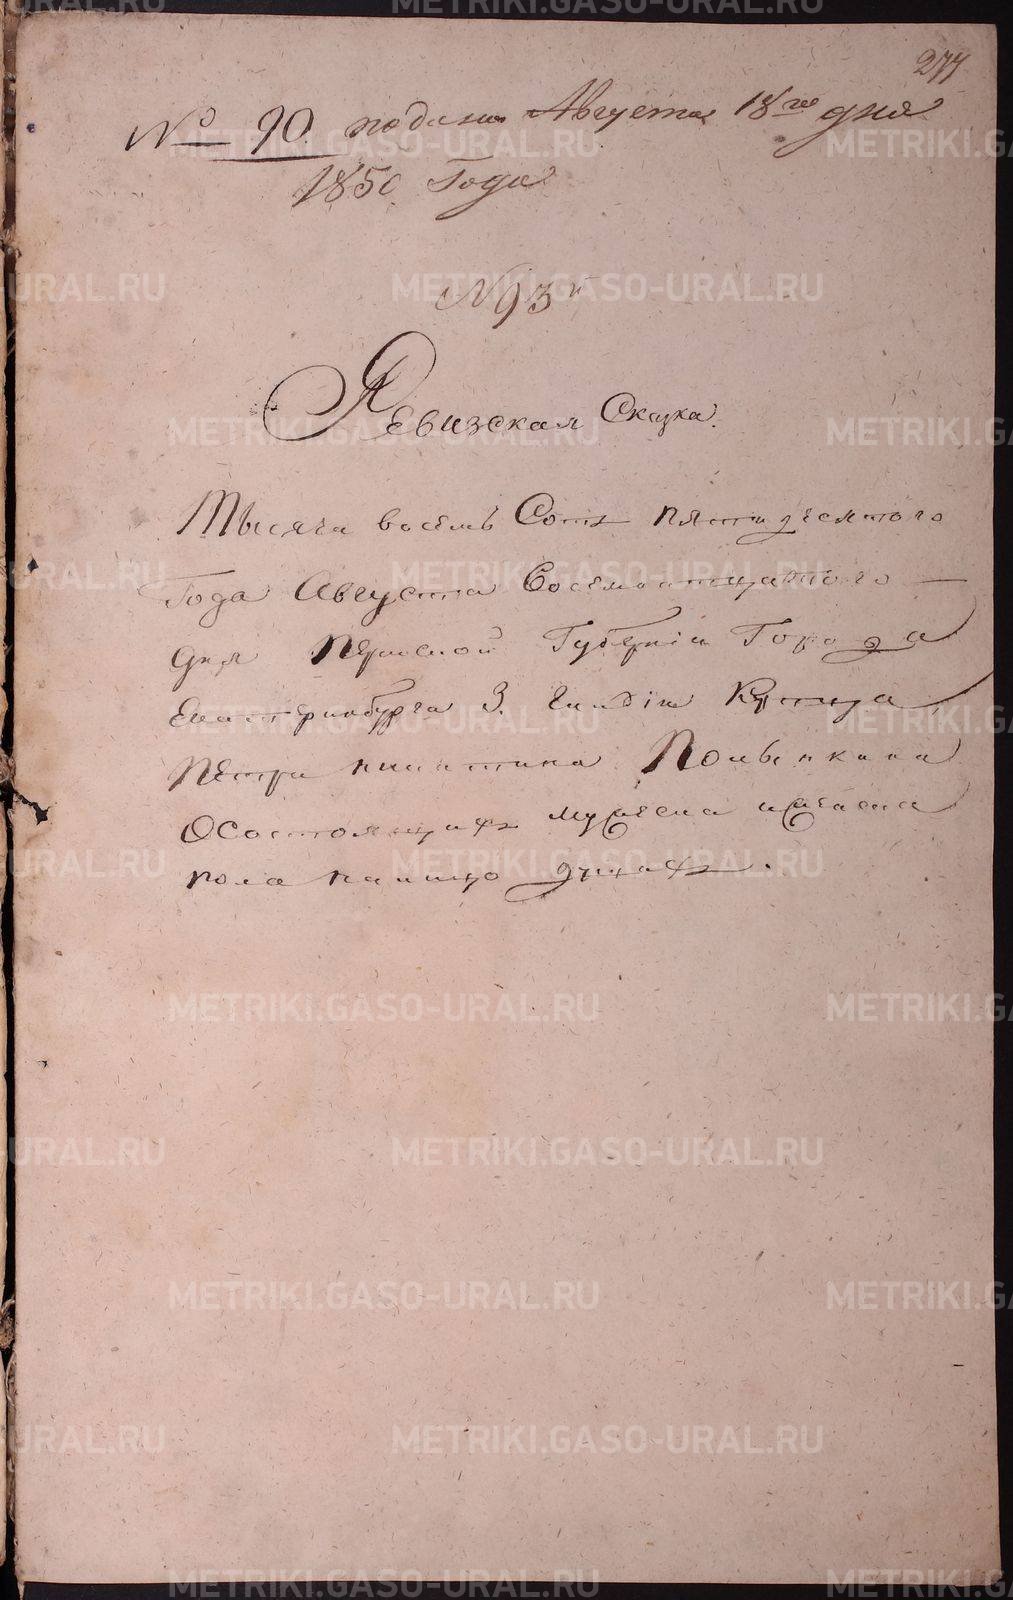 277
№ 90 подана Августа 18го дня
1850 Года
№ 93й
Ревизская Сказка.
Тысяча восемь Сотъ пятидесятого
Года Августа Восемнатцатого
дня Пермской Губерніи Города
Екатеринбурга 3. Гилдіи Купца
Петра никитина
Осостоящихъ мужеска иженска
пола налицо душахъ.
METRIKI.GASO-URAL.RU